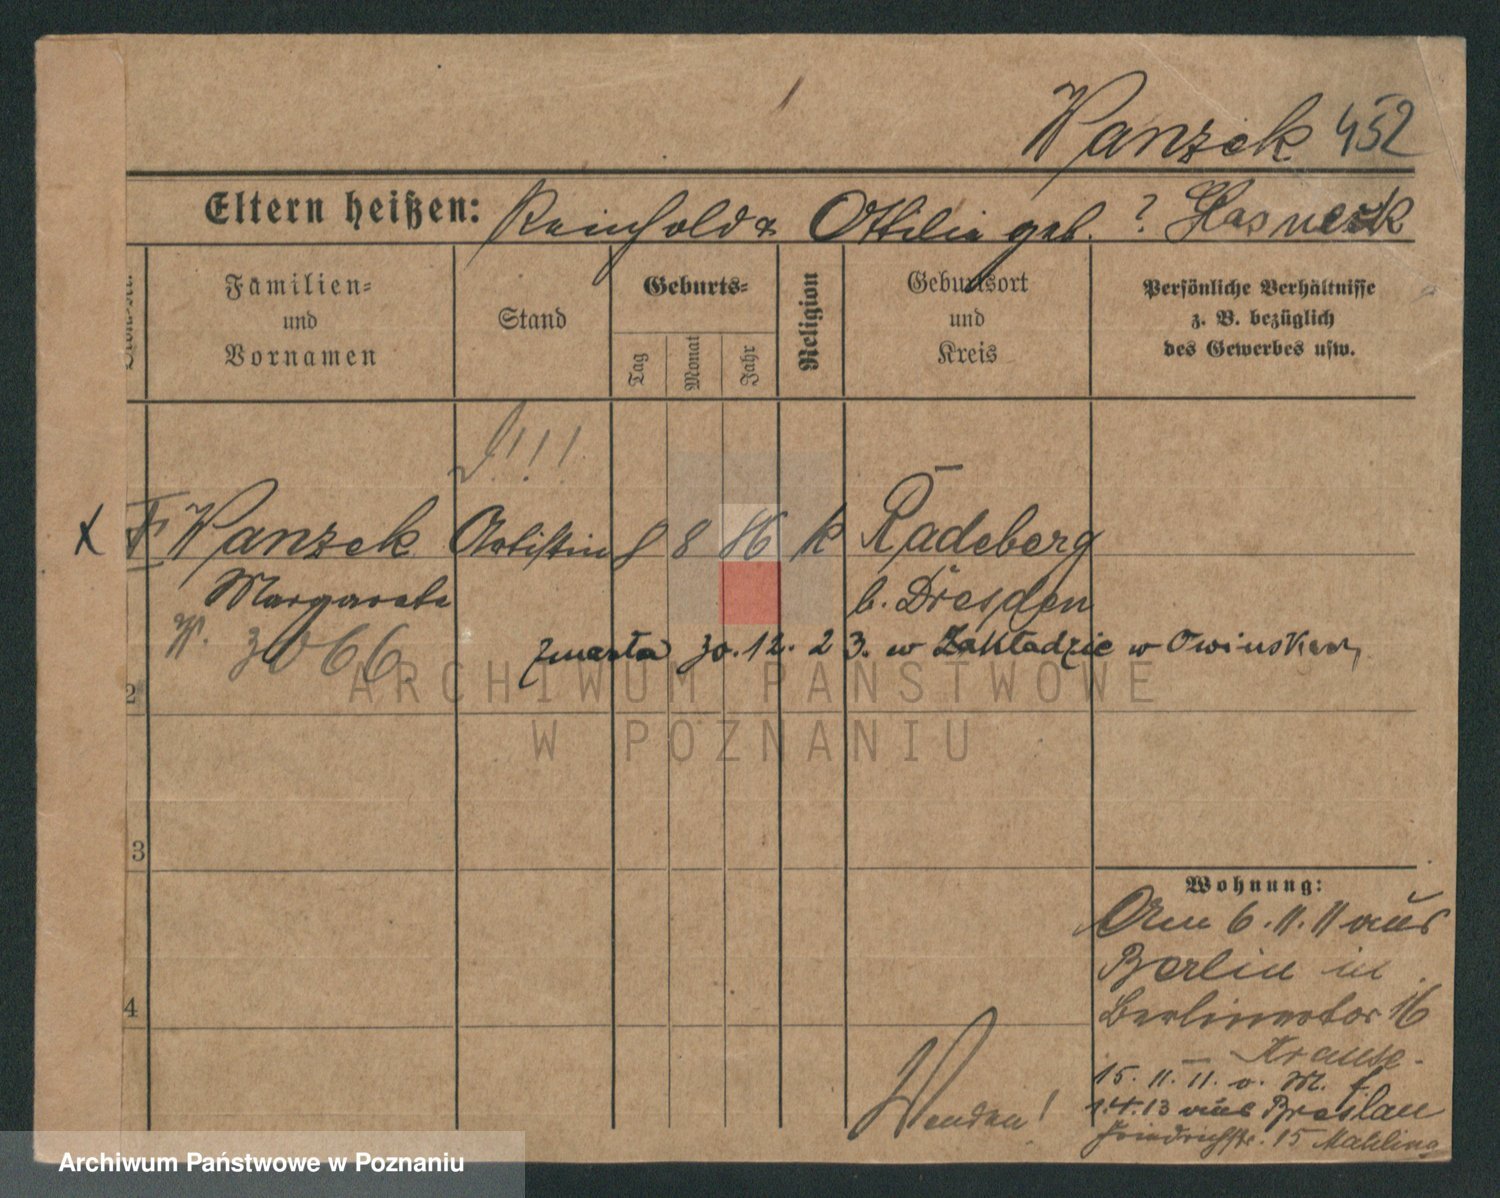 Wanzek 452
Eltern heißen: Reinhold & Ottilie geb. ? Hasneck
Familien- und Vornamen
Stand
Geburts-
Tag
Monat
Jahr
Religion
Geburtsort und Kreis
Persönliche Verhältnisse
z. B. bezüglich
des Gewerbes usw.
!!!
X Wanzek Artistin 8 8 86 k Radeberg
Margarete b. Dresden
3066
zmarła 30.12.23. w Zakładzie w Owinskach
ARCHIWUM PAŃSTWOWE
W POZNANIU
2
3
4
Wohnung:
Am 6.11.11 aus
Berlin in
Berlinertor 16
Krause.
15.11.11. v. M.
1.4.13 aus Breslau
Friedrichstr. 15 Mahling
Wenden!
Archiwum Państwowe w Poznaniu